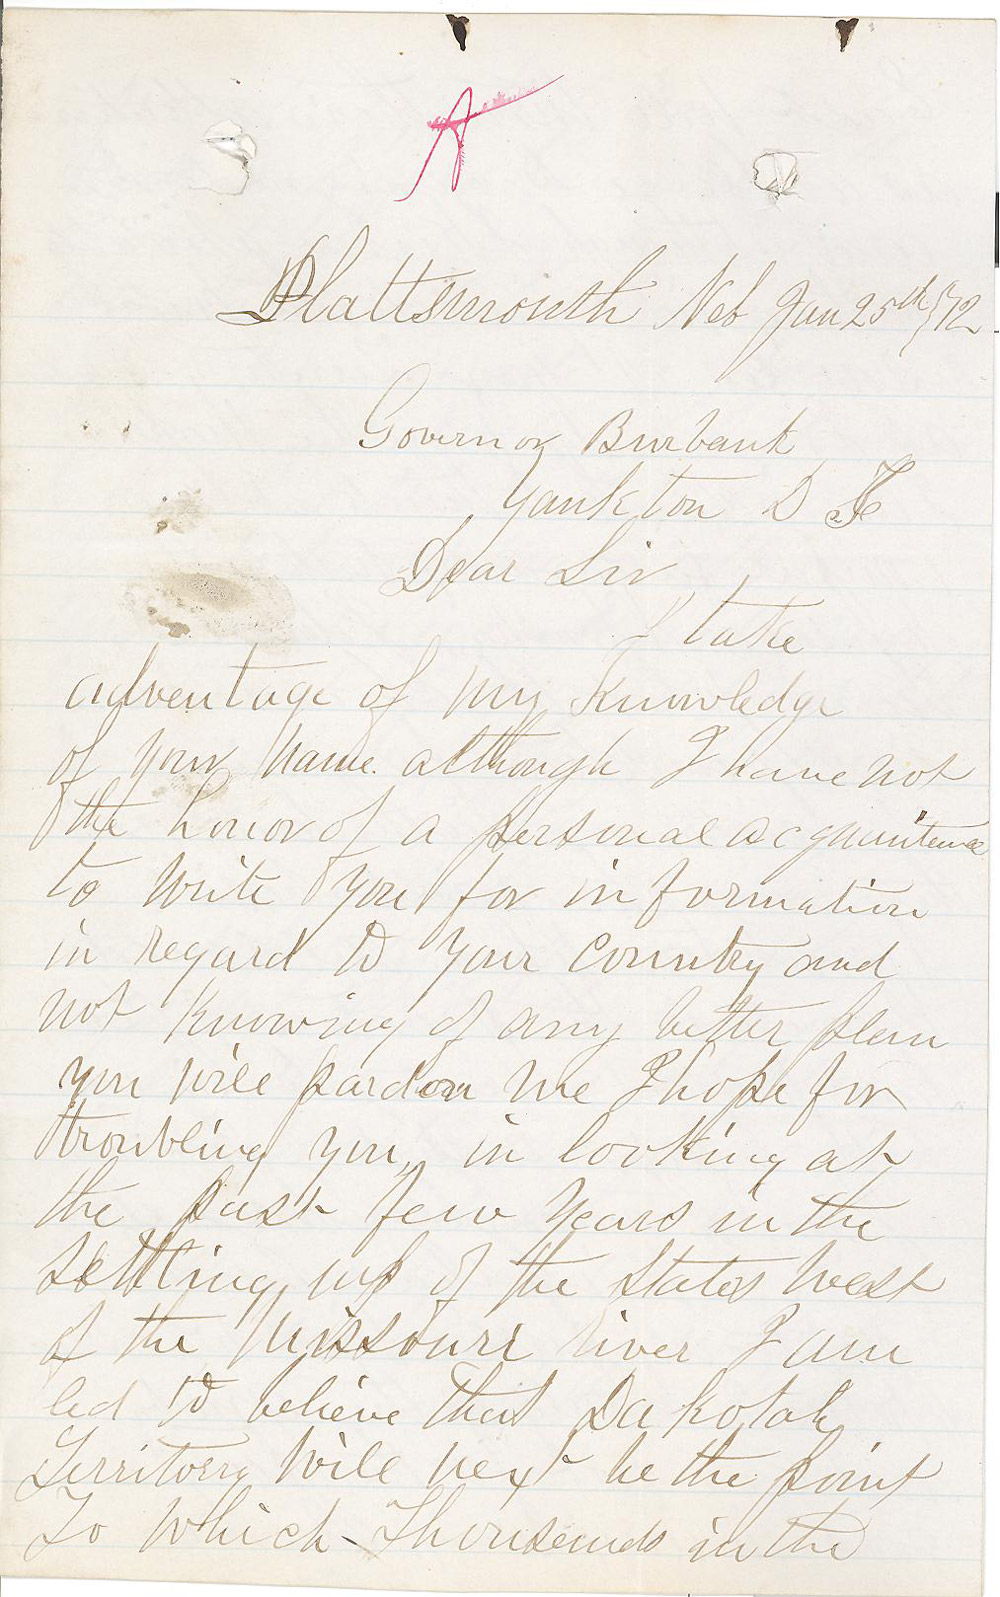 A
Plattsmouth Neb Jan 25th /72
Governor Burbank
Yankton D T
Dear Sir
I take
advantage of my Knowledge
of your name although I have not
the honor of a personal acquaintance
to write you for information
in regard to your country and
not Knowing of any better plan
you will pardon me I hope for
troubling you, in looking at
the past few years in the
settling up of the States west
of the Missouri river I am
led to believe that Dakotah
Territory will next be the point
To which Thousands in the